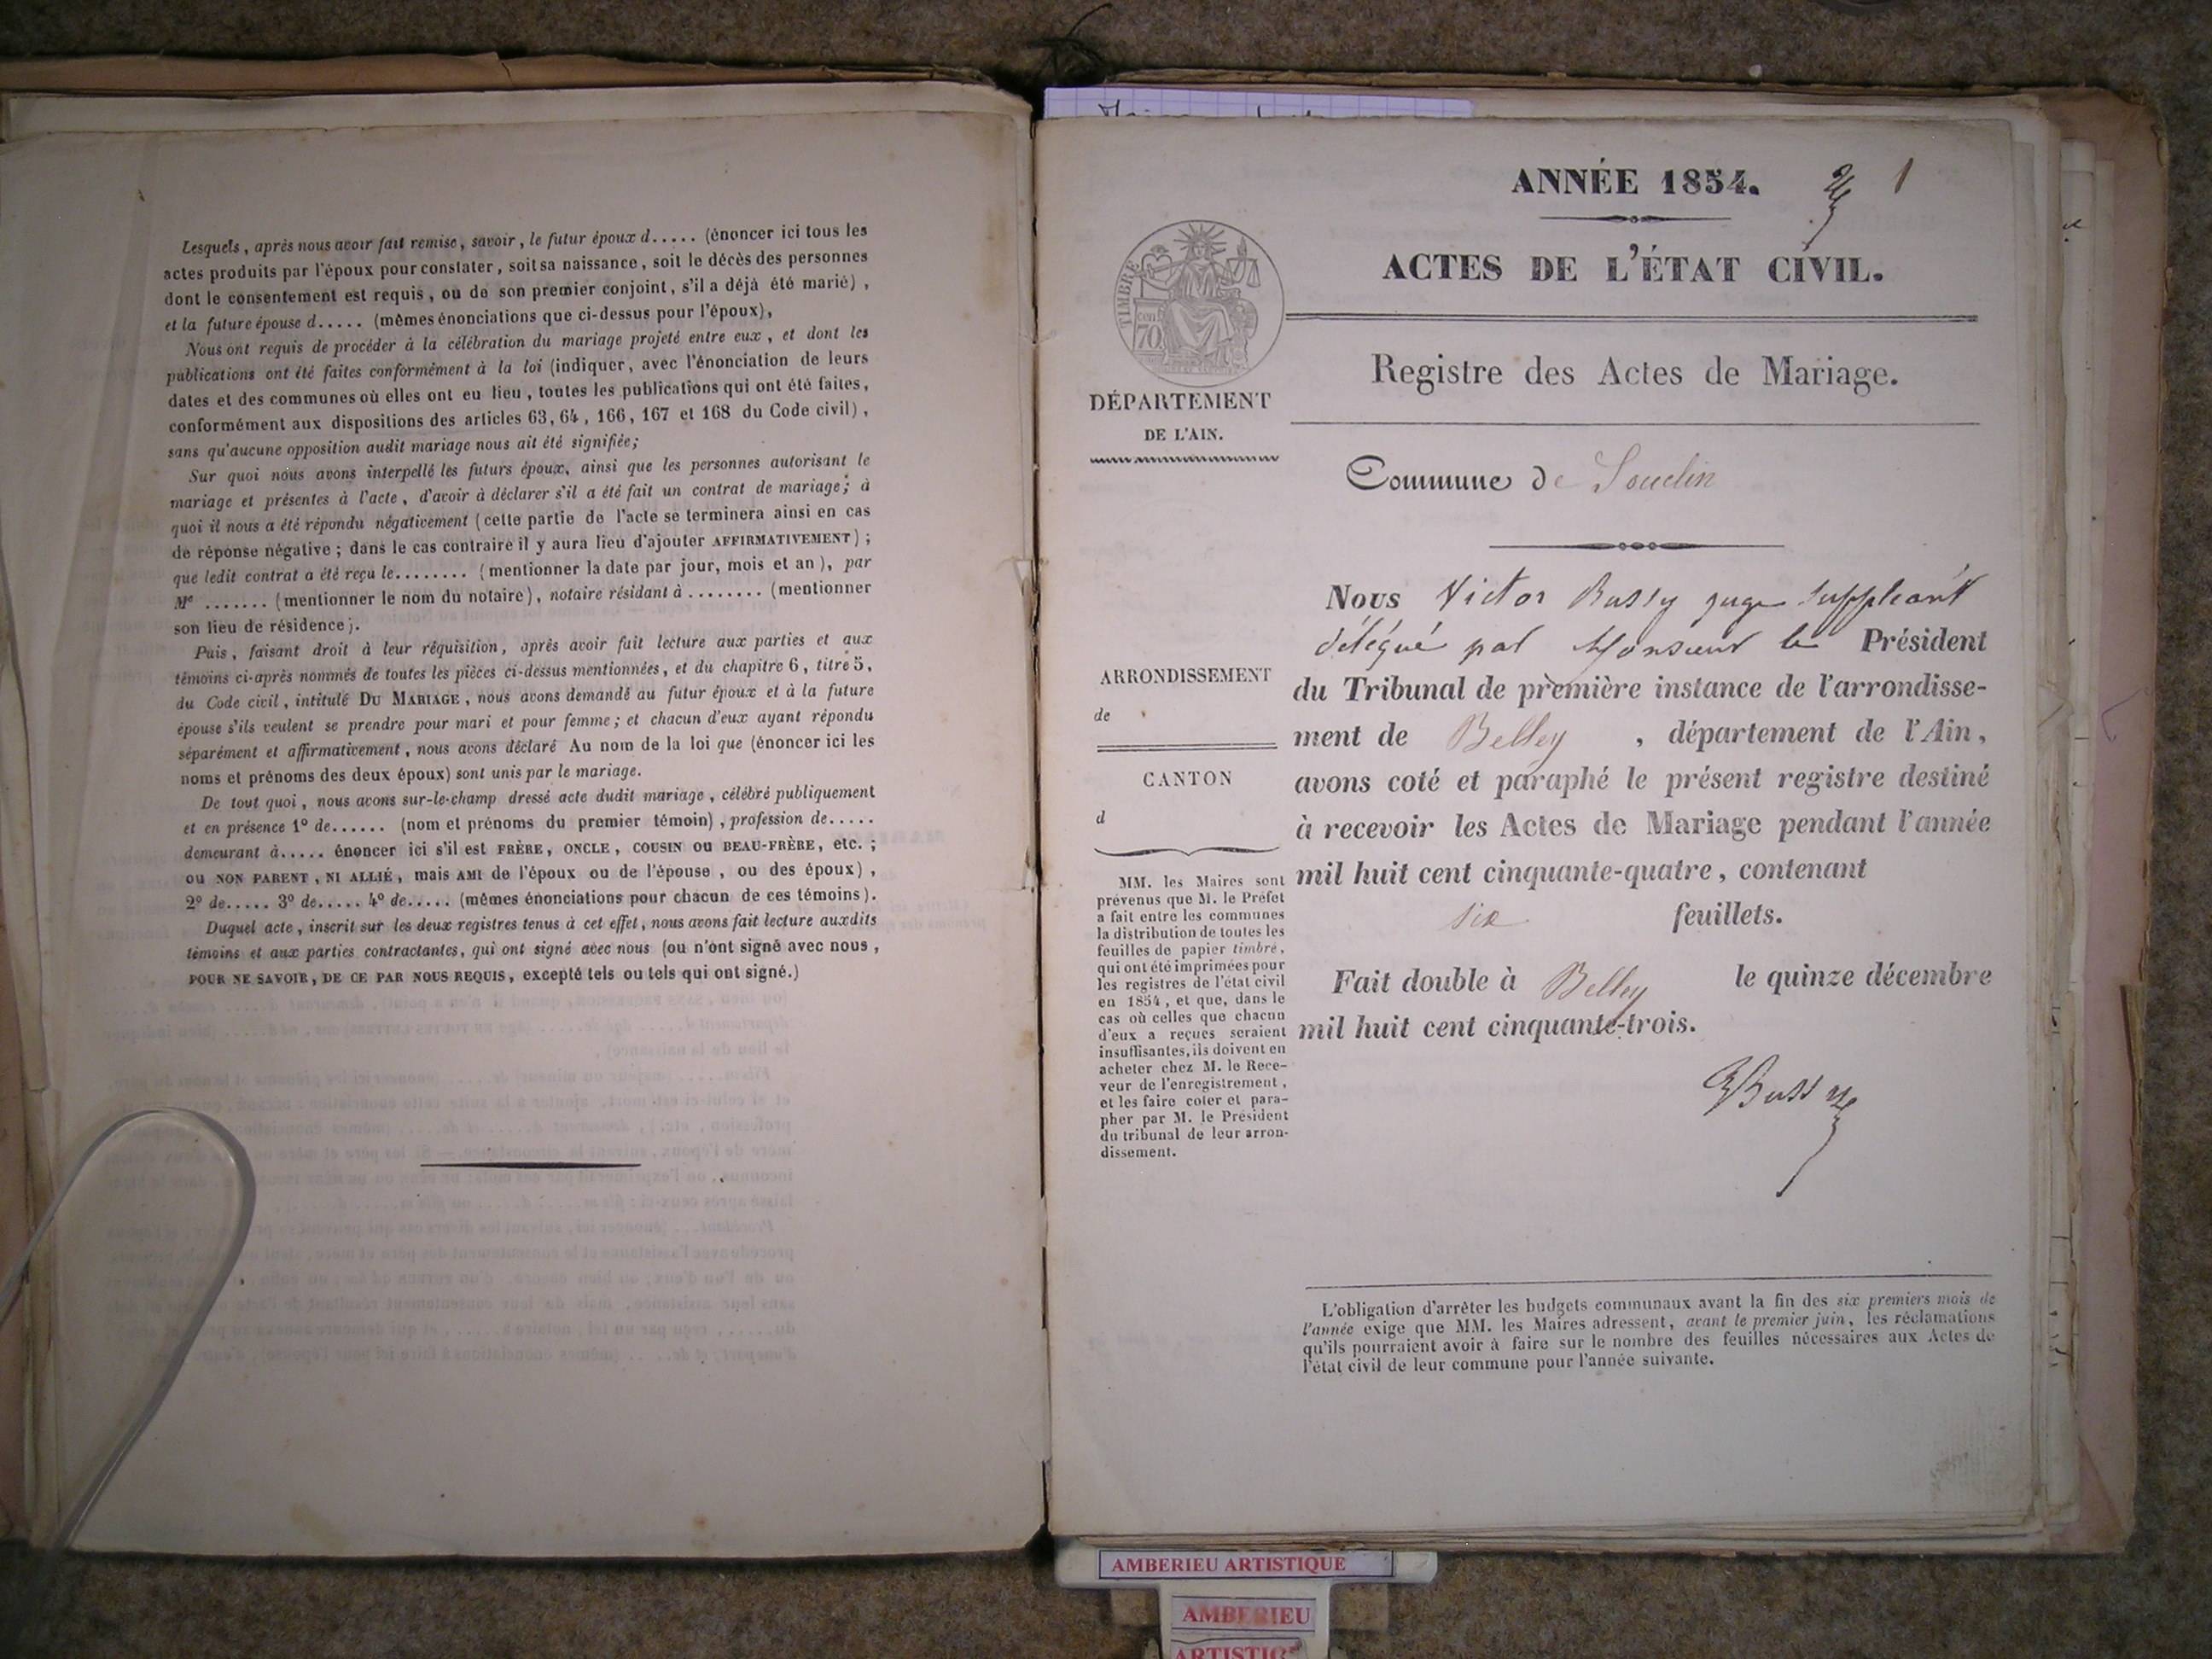 Lesquels, après nous avoir fait remise, savoir, le futur époux d..... (énoncer ici tous les
actes produits par l'époux pour constater, soit sa naissance, soit le décès des personnes
dont le consentement est requis, ou de son premier conjoint, s'il a déjà été marié),
et la future épouse d..... (mêmes énonciations que ci-dessus pour l'époux),
Nous ont requis de procéder à la célébration du mariage projeté entre eux, et dont les
publications ont été faites conformément à la loi (indiquer, avec l'énonciation de leurs
dates et des communes où elles ont eu lieu, toutes les publications qui ont été faites,
conformément aux dispositions des articles 63, 64, 166, 167 et 168 du Code civil),
sans qu'aucune opposition audit mariage nous ait été signifiée;
Sur quoi nous avons interpellé les futurs époux, ainsi que les personnes autorisant le
mariage et présentes à l'acte, d'avoir à déclarer s'il a été fait un contrat de mariage; à
quoi il nous a été répondu négativement (cette partie de l'acte se terminera ainsi en cas
de réponse négative; dans le cas contraire il y aura lieu d'ajouter AFFIRMATIVEMENT);
que ledit contrat a été reçu le........ (mentionner la date par jour, mois et an), par
Me ....... (mentionner le nom du notaire), notaire résidant à ........ (mentionner
son lieu de résidence).
Puis, faisant droit à leur réquisition, après avoir fait lecture aux parties et aux
témoins ci-après nommés de toutes les pièces ci-dessus mentionnées, et du chapitre 6, titre 5,
du Code civil, intitulé DU MARIAGE, nous avons demandé au futur époux et à la future
épouse s'ils veulent se prendre pour mari et pour femme; et chacun d'eux ayant répondu
séparément et affirmativement, nous avons déclaré Au nom de la loi que (énoncer ici les
noms et prénoms des deux époux) sont unis par le mariage.
De tout quoi, nous avons sur-le-champ dressé acte dudit mariage, célébré publiquement
et en présence 1º de...... (nom et prénoms du premier témoin), profession de.....
demeurant à..... énoncer ici s'il est FRÈRE, ONCLE, COUSIN ou BEAU-FRÈRE, etc.;
ou NON PARENT, NI ALLIÉ, mais AMI de l'époux ou de l'épouse, ou des époux),
2º de..... 3º de..... 4º de..... (mêmes énonciations pour chacun de ces témoins).
Duquel acte, inscrit sur les deux registres tenus à cet effet, nous avons fait lecture auxdits
témoins et aux parties contractantes, qui ont signé avec nous (ou n'ont signé avec nous,
POUR NE SAVOIR, DE CE PAR NOUS REQUIS, excepté tels ou tels qui ont signé.)
ANNÉE 1854.
1
ACTES DE L'ÉTAT CIVIL.
TIMBRE
CENT
70
DÉPARTEMENT
DE L'AIN.
Registre des Actes de Mariage.
Commune de Souclin
ARRONDISSEMENT
de
CANTON
d
MM. les Maires sont
prévenus que M. le Préfet
a fait entre les communes
la distribution de toutes les
feuilles de papier timbré,
qui ont été imprimées pour
les registres de l'état civil
en 1854, et que, dans le
cas où celles que chacun
d'eux a reçues seraient
insuffisantes, ils doivent en
acheter chez M. le Rece-
veur de l'enregistrement,
et les faire coter et para-
pher par M. le Président
du tribunal de leur arron-
dissement.
Nous Victor Bussy juge suppléant
délégué par Monsieur le Président
du Tribunal de première instance de l'arrondisse-
ment de Belley, département de l'Ain,
avons coté et paraphé le présent registre destiné
à recevoir les Actes de Mariage pendant l'année
mil huit cent cinquante-quatre, contenant
six feuillets.
Fait double à Belley le quinze décembre
mil huit cent cinquante-trois.
VBussy
L'obligation d'arrêter les budgets communaux avant la fin des six premiers mois de
l'année exige que MM. les Maires adressent, avant le premier juin, les réclamations
qu'ils pourraient avoir à faire sur le nombre des feuilles nécessaires aux Actes de
l'état civil de leur commune pour l'année suivante.
AMBERIEU ARTISTIQUE
AMBERIEU
ARTISTIQ